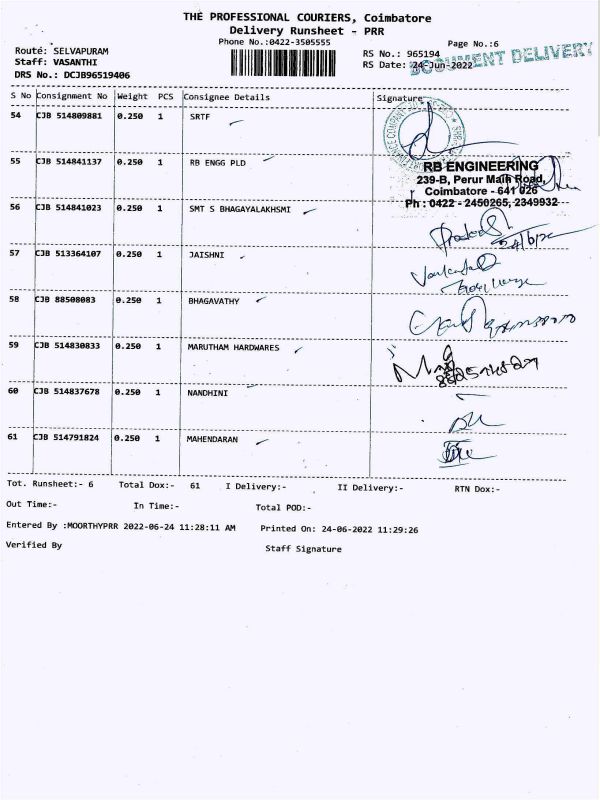 THE PROFESSIONAL COURIERS, Coimbatore
Delivery Runsheet - PRR
Phone No.:0422-3505555
Page No.:6
Route: SELVAPURAM
RS No.: 965194
Staff: VASANTHI
RS Date: 24-Jun-2022
DOCUMENT DELIVERY
DRS No.: DCJB96519406
S No Consignment No Weight PCS Consignee Details Signature
54 CJB 514809881 0.250 1 SRTF
55 CJB 514841137 0.250 1 RB ENGG PLD
RB ENGINEERING
239-B, Perur Main Road,
Coimbatore - 641 026
Ph : 0422 - 2450265, 2349932
56 CJB 514841023 0.250 1 SMT S BHAGAYALAKHSMI
24/6/22
57 CJB 513364107 0.250 1 JAISHNI
58 CJB 88508083 0.250 1 BHAGAVATHY
59 CJB 514830833 0.250 1 MARUTHAM HARDWARES
60 CJB 514837678 0.250 1 NANDHINI
61 CJB 514791824 0.250 1 MAHENDARAN
Tot. Runsheet:- 6 Total Dox:- 61 I Delivery:- II Delivery:- RTN Dox:-
Out Time:- In Time:- Total POD:-
Entered By :MOORTHYPRR 2022-06-24 11:28:11 AM Printed On: 24-06-2022 11:29:26
Verified By Staff Signature